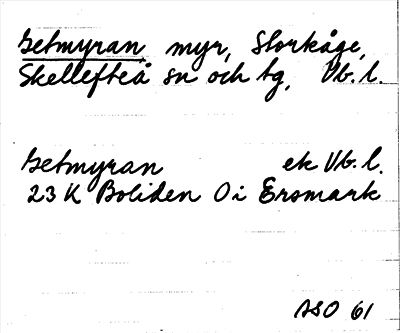 Getmyran, myr, Storkåge,
Skellefteå sn och tg, Vb. l.
Getmyran ek Vb. l.
23 K Boliden 0 i Ersmark
ASO 61